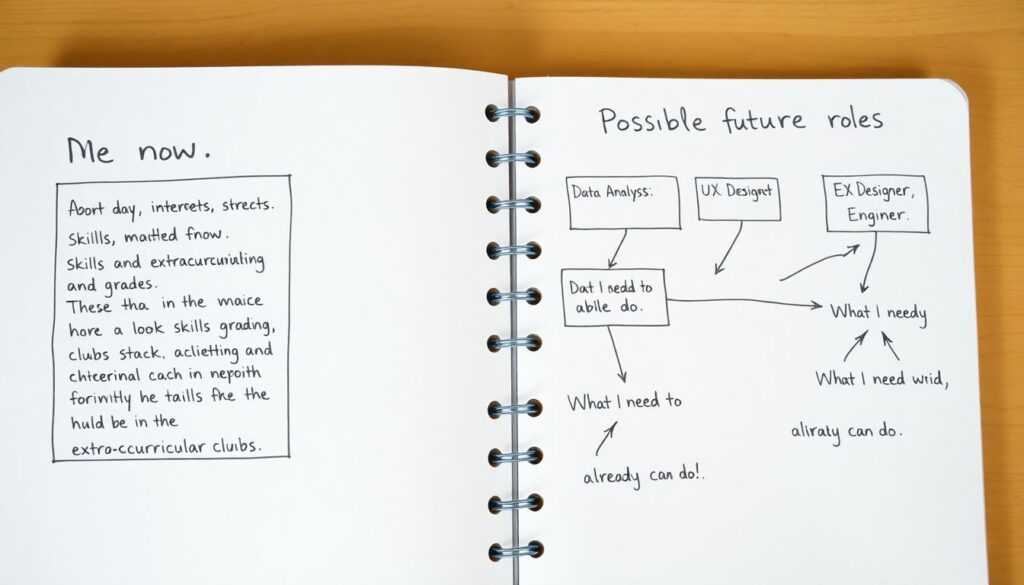 Me now.
Abort day, intercets, strects.
Skillls, maitled fnow.
Skills and extracurcuriuling
and grades.
These tha in the maice
hore a look skills grading,
clubs stack, aclietting and
chtecerinal cach in nepoith
forinitly he taills fhe the
huld be in the
extra-ccurricular clubs.
Possible future roles
Data Analyss:
UX Designt
EX Designer,
Enginer.
Dat I nedd to
abile do.
What I needy
What I need wrid,
What I need to
aliraty can do.
already can do!.